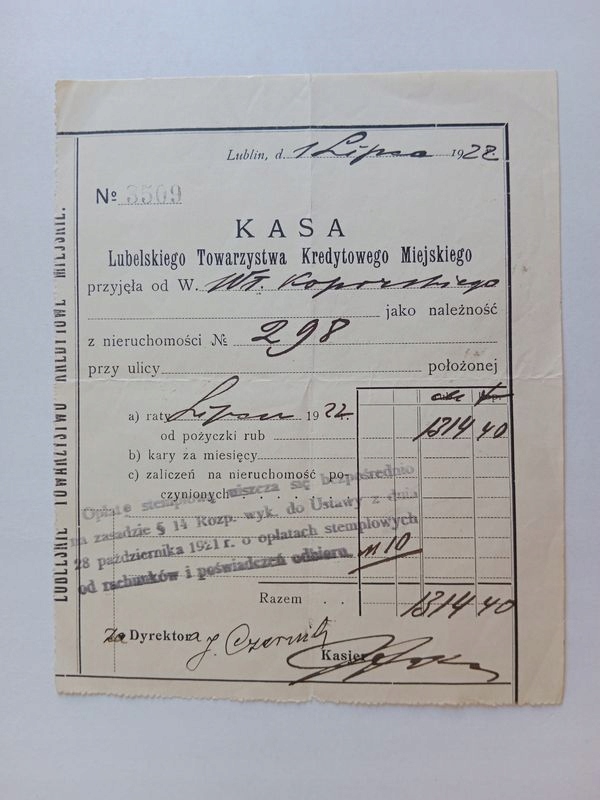 Lublin, d. 1 Lipca 1922.
№ 3509
KASA
Lubelskiego Towarzystwa Kredytowego Miejskiego
przyjęła od W. Wł. Koporskiego
jako należność
z nieruchomości № 298
przy ulicy położonej
a) raty Lipca 1922 r.
od pożyczki rub 1314 40
b) kary za miesięcy
c) zaliczeń na nieruchomość po-
czynionych
Opłatę stemplową uiszcza się bezpośrednio
na zasadzie § 14 Rozp. wyk. do Ustawy z dnia
28 października 1921 r. o opłatach stemplowych
od rachunków i poświadczeń odbioru.
10
Razem . . 1314 40
Za Dyrektora J.
Kasjer
LUBELSKIE TOWARZYSTWO KREDYTOWE MIEJSKIE.